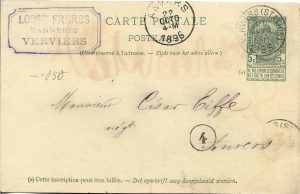 LOOSE FRÈRES
TANNERIE
VERVIERS
CARTE POSTALE
POSTKAART
(Côté réservé à l'adresse. — Zijde voor het adres alleen.)
ANVERS
22
OCTO
1895
Monsieur César Eiffe
négt
Anvers
4
(a) Cette inscription peut être biffée. — Dit opschrift mag doorgehaald worden.